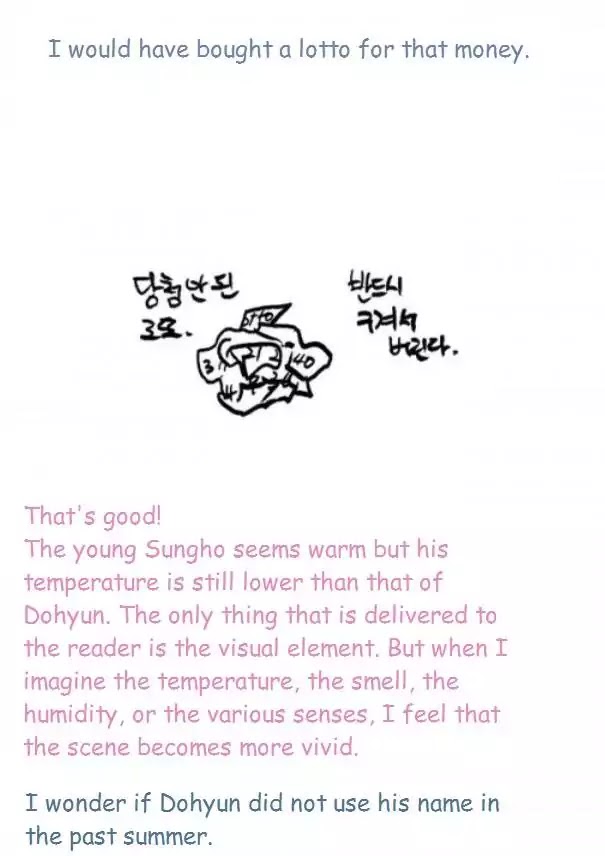 I would have bought a lotto for that money.
당첨 안 된
로또.
반드시
구겨서
버린다.
otto
3
21
2
40
41
That's good!
The young Sungho seems warm but his
temperature is still lower than that of
Dohyun. The only thing that is delivered to
the reader is the visual element. But when I
imagine the temperature, the smell, the
humidity, or the various senses, I feel that
the scene becomes more vivid.
I wonder if Dohyun did not use his name in
the past summer.